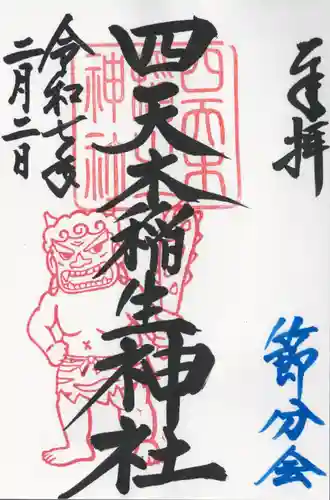 奉拝
四天木稲生神社
令和七年
二月二日
節分会